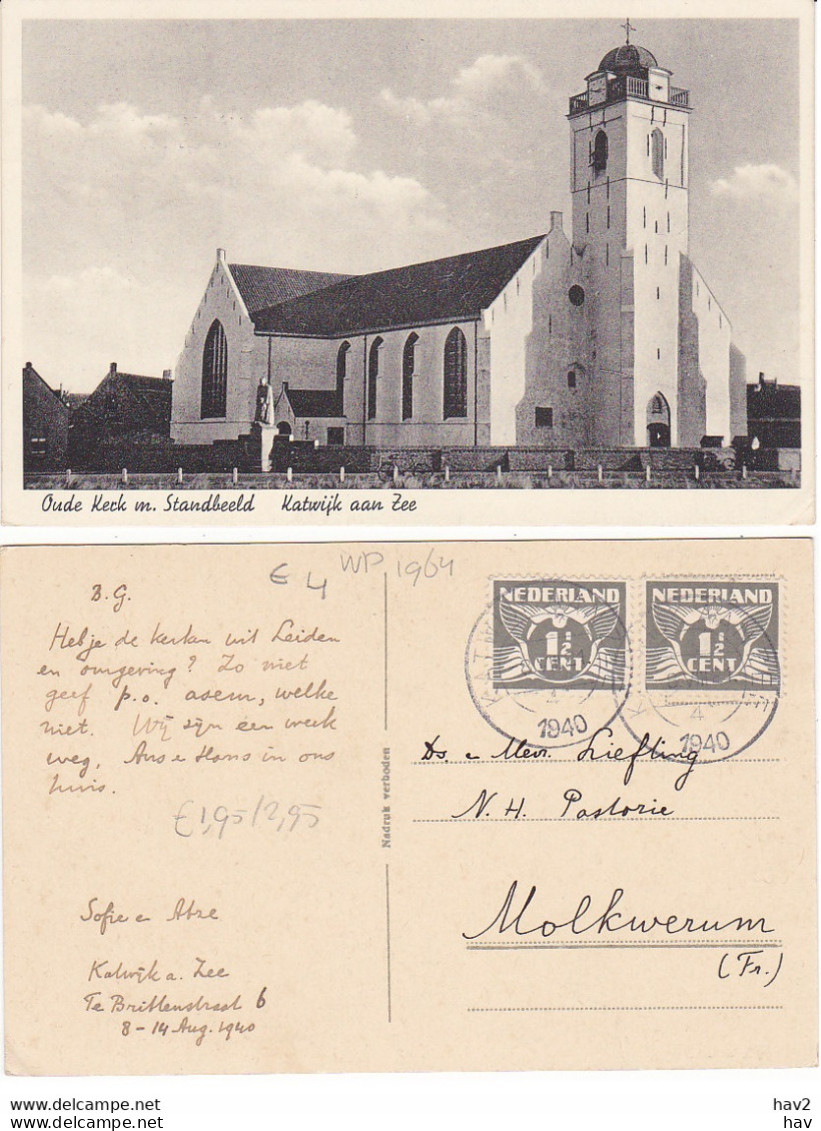 Oude Kerk m. Standbeeld Katwijk aan Zee
€ 4
WP 1964
B.G.
Heb je de kerken uit Leiden
en omgeving? Zo niet
geef p.o. asem, welke
niet. Wij zijn een week
weg, Ans e Hans in ons
huis.
€1,95/2,95
Sofie en Atze
Katwijk a. Zee
Te Brittenstraat 6
8 - 14 Aug. 1940
Nadruk verboden
NEDERLAND
1½
CENT
NEDERLAND
1½
CENT
KAT
4
1940
4
1940
Ds. e Mevr. Liefting
N. H. Pastorie
Molkwerum
(Fr.)
www.delcampe.net
www.delcampe.net
hav2
hav